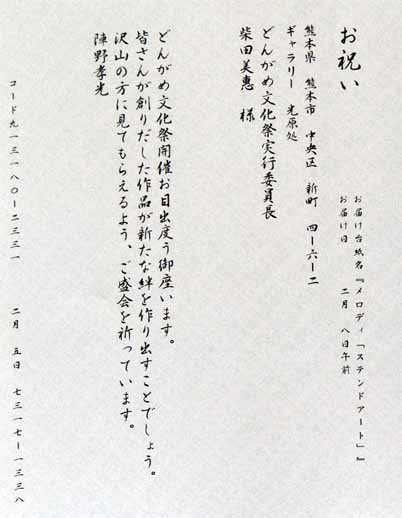 お祝い
お届け台紙名『メロディ「ステンドアート」』
お届け日　二月　八日午前
熊本県　熊本市　中央区　新町　四ー六ー二
ギャラリー　光原処
どんがめ文化祭実行委員長
柴田美惠　様
どんがめ文化祭開催お目出度う御座います。
皆さんが創りだした作品が新たな絆を作り出すことでしょう。
沢山の方に見てもらえるよう、ご盛会を祈っています。
陣野孝光
コード九一三一八〇ー二三三一　二月　五日　七三一七ー一三三八